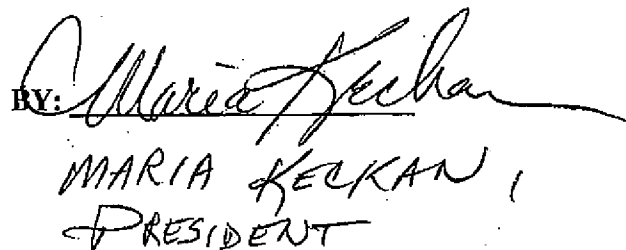 BY: Maria Keckan
MARIA KECKAN,
PRESIDENT